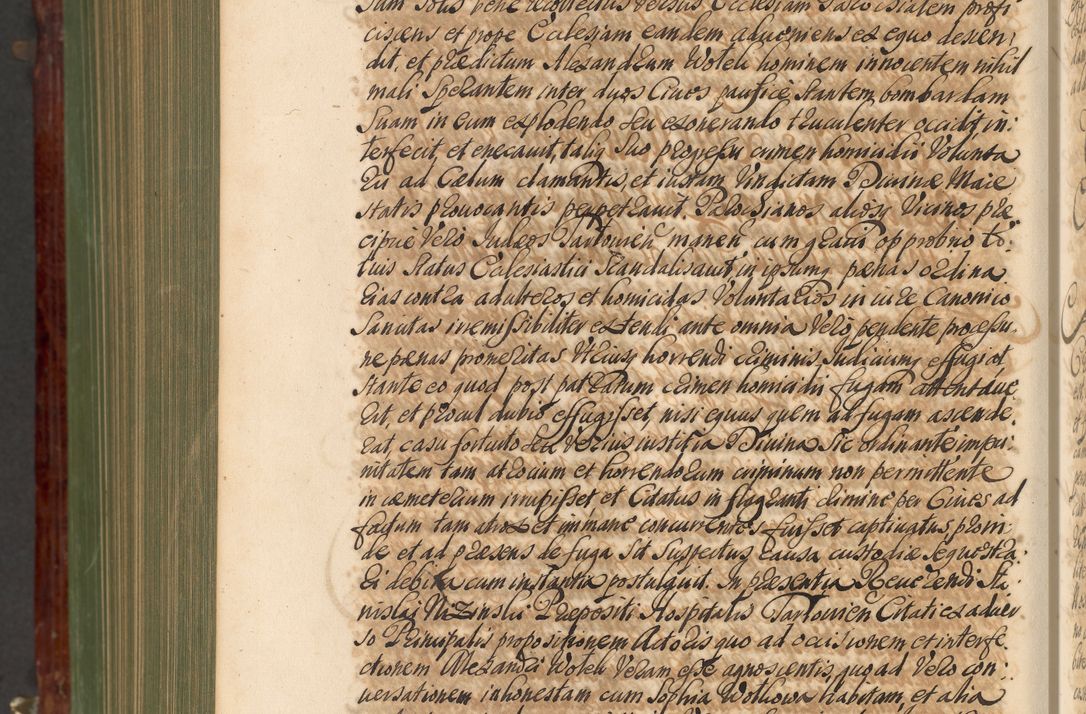 ciscens et prope Ecclesiam eandem adveniens ex equo descen
dit, et prædictum Alexandrum Wotek hominem innocentem nihil
mali Sperantem inter duos Cives pacificè stantem bombardam
Suam in eum explodendo seu exonerando truculenter occidit in:
terfecit, et enecavit, taliq Suo progressu crimen homicidii Volunta
rii ad Cœlum clamantis, et iustam Vindictam Divinæ Maie
statis provocantis perpetravit. Parochianos aliosq Vicinos præ
cipuè Verò Judæos Tarlovien manen cum gravi opprobrio to:
tius Status Ecclesiastici Scandalisavit in ipsumq pænas ordina
rias contra adulteros et homicidas Voluntarios in iure Canonico
Sancitas irremissibiliter extendi ante omnia Verò pendente processu
ne pænas promeritas Utriusq horrendi criminis Judiciumq effugiat
Stante eo quod post patratum crimen homicidii fugam attentave
rit, et procul dubio effugisset, nisi equus quem ad fugam ascende
rat, casu fortuito seu verius iustitia Divina Sic ordinante impu:
nitatem tam atrocium et horrendorum criminum non permittente
in cæmeterium irrupisset et Citatus in flagranti crimine per Cives ad
factum tam atrox et immane concurrentes fuisset captivatus proin
de et ad præsens de fuga Sit Suspectus causa custodiæ sequestra
ri debita cum instantia postulavit. In præsentia Reverendi Sta
nislai Nizinski Præpositi Hospitalis Tarlovien Citati ex adver
so Principalis propositionem Actoris quo ad occisionem et interfe
ctionem Alexandri Wotek Veram esse agnoscentis, quoad Vero con:
versationem inhonestam cum Sophia Wotkowa habitam, et alia